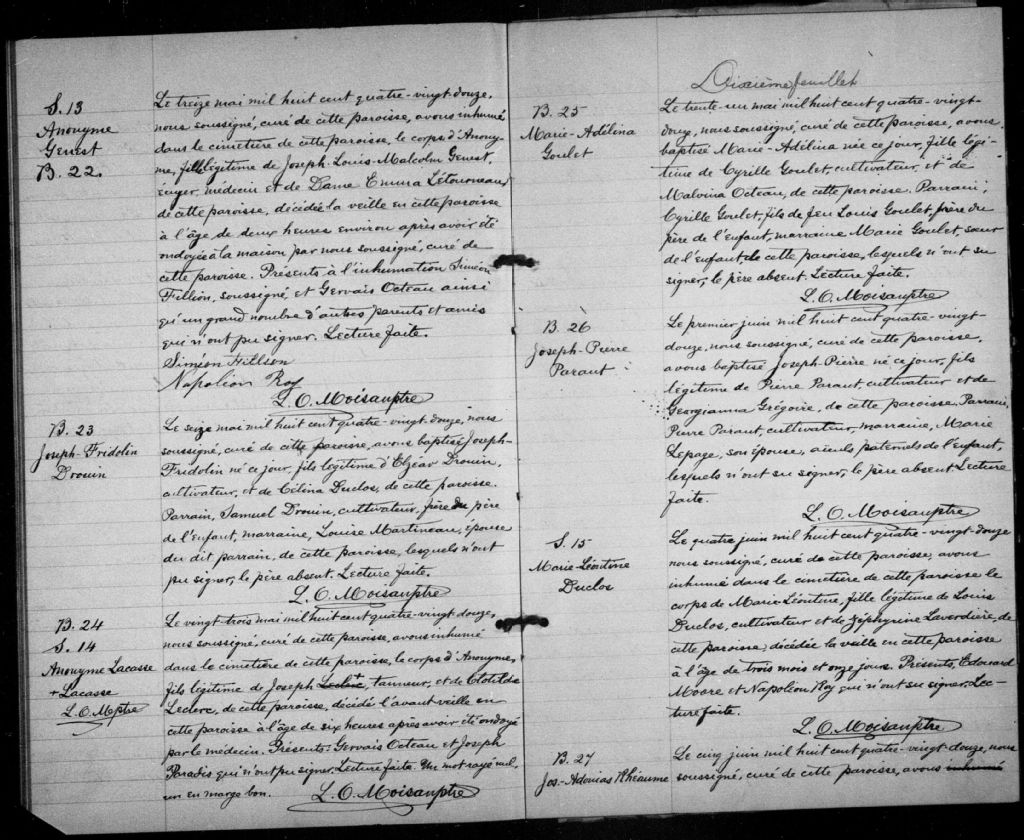 S. 13
Anonyme
Genest
B. 22.
Le treize mai mil huit cent quatre-vingt-douze,
nous soussigné, curé de cette paroisse, avons inhumé
dans le cimetière de cette paroisse, le corps d'Anony-
me, fille légitime de Joseph-Louis-Malcolm Genest,
écuyer, médecin et de Dame Emma Létourneau,
de cette paroisse, décédée la veille en cette paroisse
à l'âge de deux heures environ après avoir été
ondoyée à la maison par nous soussigné, curé de
cette paroisse. Présents à l'inhumation Siméon
Fillion, soussigné et Gervais Octeau ainsi
qu'un grand nombre d'autres parents et amis
qui n'ont pu signer. Lecture faite.
Siméon Fillion
Napoléon Roy
L. O. Moisan ptre
B. 23
Joseph-Fridolin
Drouin
Le seize mai mil huit cent quatre-vingt-douze, nous
soussigné, curé de cette paroisse, avons baptisé Joseph-
Fridolin né ce jour, fils légitime d'Elzéar Drouin,
cultivateur, et de Célina Duclos, de cette paroisse.
Parrain, Samuel Drouin, cultivateur, frère du père
de l'enfant, marraine, Louise Martineau, épouse
du dit parrain, de cette paroisse, lesquels n'ont
pu signer, le père absent. Lecture faite.
L. O. Moisan ptre
B. 24
S. 14
Anonyme Lacasse
+ Lacasse
L. O. M ptre
Le vingt-trois mai mil huit cent quatre-vingt-douze,
nous soussigné, curé de cette paroisse, avons inhumé
dans le cimetière de cette paroisse, le corps d'Anonyme,
fils légitime de Joseph Leclerc +, tanneur, et de Clotilde
Leclerc, de cette paroisse, décédé l'avant veille en
cette paroisse à l'âge de six heures après avoir été ondoyé
par le médecin. Présents: Gervais Octeau et Joseph
Paradis qui n'ont pu signer. Lecture faite. Un mot rayé nul,
un en marge bon. L. O. Moisan ptre
Dixième feuillet
B. 25
Marie-Adélina
Goulet
Le trente-un mai mil huit cent quatre-vingt-
douze, nous soussigné, curé de cette paroisse, avons
baptisé Marie-Adélina née ce jour, fille légi-
time de Cyrille Goulet, cultivateur, et de
Malvina Octeau, de cette paroisse. Parrain,
Cyrille Goulet, fils de feu Louis Goulet, frère du
père de l'enfant, marraine Marie Goulet, sœur
de l'enfant de cette paroisse, lesquels n'ont su
signer, le père absent. Lecture faite.
L. O. Moisan ptre
B. 26
Joseph-Pierre
Paraut
Le premier juin mil huit cent quatre-vingt-
douze, nous soussigné, curé de cette paroisse,
avons baptisé Joseph-Pierre né ce jour, fils
légitime de Pierre Paraut cultivateur et de
Georgianna Grégoire, de cette paroisse. Parrain,
Pierre Paraut, cultivateur, marraine, Marie
Lepage, son épouse, aïeuls paternels de l'enfant,
lesquels n'ont su signer, le père absent. Lecture
faite.
L. O. Moisan ptre
S. 15
Marie-Léontine
Duclos
Le quatre juin mil huit cent quatre-vingt-douze
nous soussigné, curé de cette paroisse, avons
inhumé dans le cimetière de cette paroisse le
corps de Marie-Léontine, fille légitime de Louis
Duclos, cultivateur et de Zéphyrine Laverdière, de
cette paroisse, décédée la veille en cette paroisse
à l'âge de trois mois et onze jours. Présents, Edouard
Moore et Napoléon Roy qui n'ont su signer. Lec-
ture faite.
L. O. Moisan ptre
B. 27
Jos.-Adonias Rhéaume
Le cinq juin mil huit cent quatre-vingt-douze, nous
soussigné, curé de cette paroisse, avons inhumé